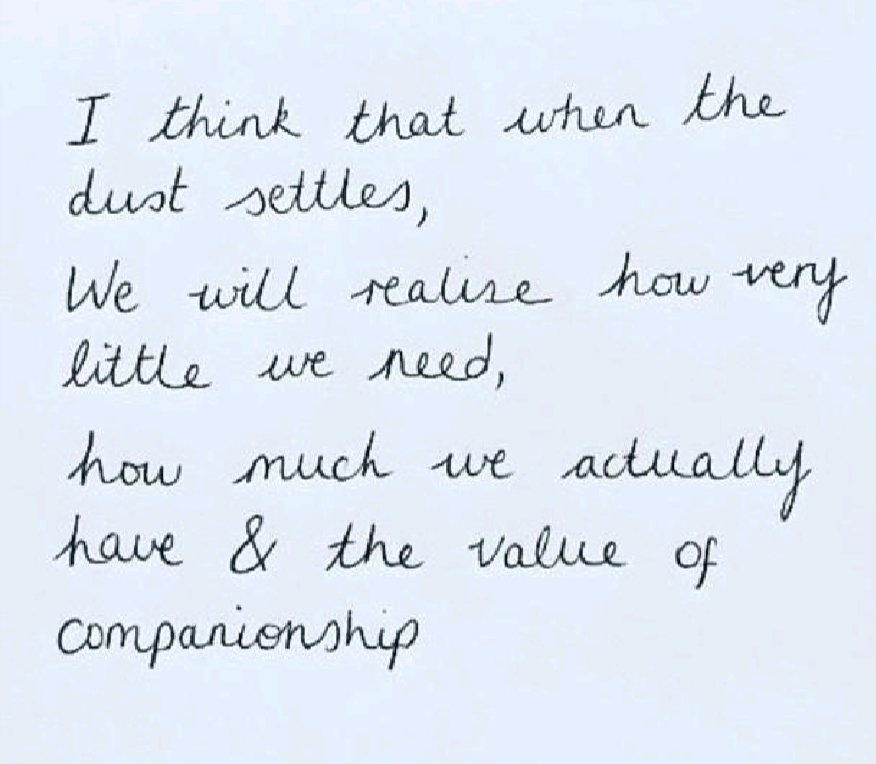 I think that when the
dust settles,
We will realise how very
little we need,
how much we actually
have & the value of
companionship